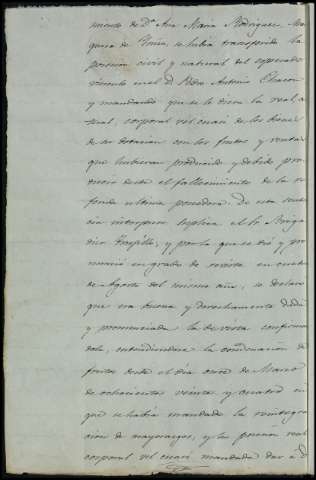 miento de D.ª Ana Maria Rodriguez, Mar
quesa de       , se habia transferido la
posesion civil y natural del espresado
vinculo en el D. Pedro Antonio Chacon
y mandando que se le diera la real, ac
tual, corporal vel cuasi de los bienes
de su dotacion con los frutos y rentas
que hubieran producido y debido pro
ducir desde el fallecimiento de la re
ferida ultima poseedora. De esta senten
cia interpuso suplica el Sr. Briga
dier       , y por la que se dió y pro
nunció en grado de revista en cuatro
de Agosto del mismo año, se declaró
que era buena y derechamente dada
y pronunciada la de vista confirman
dola, entendiendose la condenacion de
frutos desde el dia once de Marzo
de ochocientos veinte y cuatro en
que se habia mandado la reintegra
cion de mayorazgos, y la posesion real
corporal vel cuasi mandada dar á D.